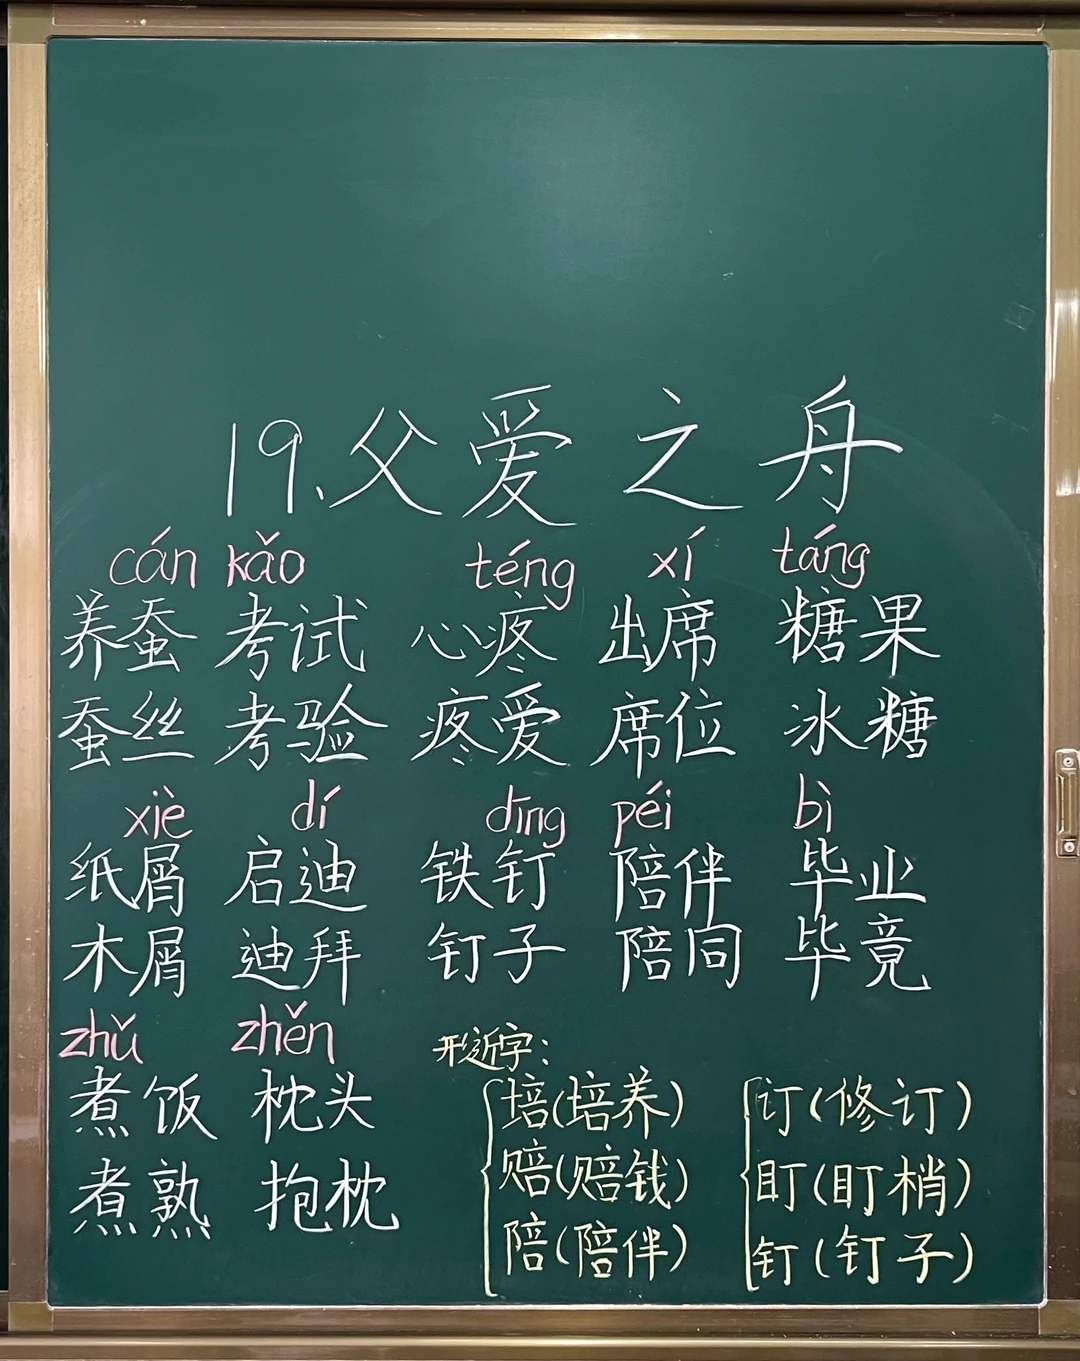 19.父爱之舟
cán kǎo téng xí táng
养蚕 考试 心疼 出席 糖果
蚕丝 考验 疼爱 席位 冰糖
xiè dí dīng péi bì
纸屑 启迪 铁钉 陪伴 毕业
木屑 迪拜 钉子 陪同 毕竟
zhǔ zhěn
煮饭 枕头
煮熟 抱枕
形近字：
培(培养) 订(修订)
赔(赔钱) 盯(盯梢)
陪(陪伴) 钉(钉子)